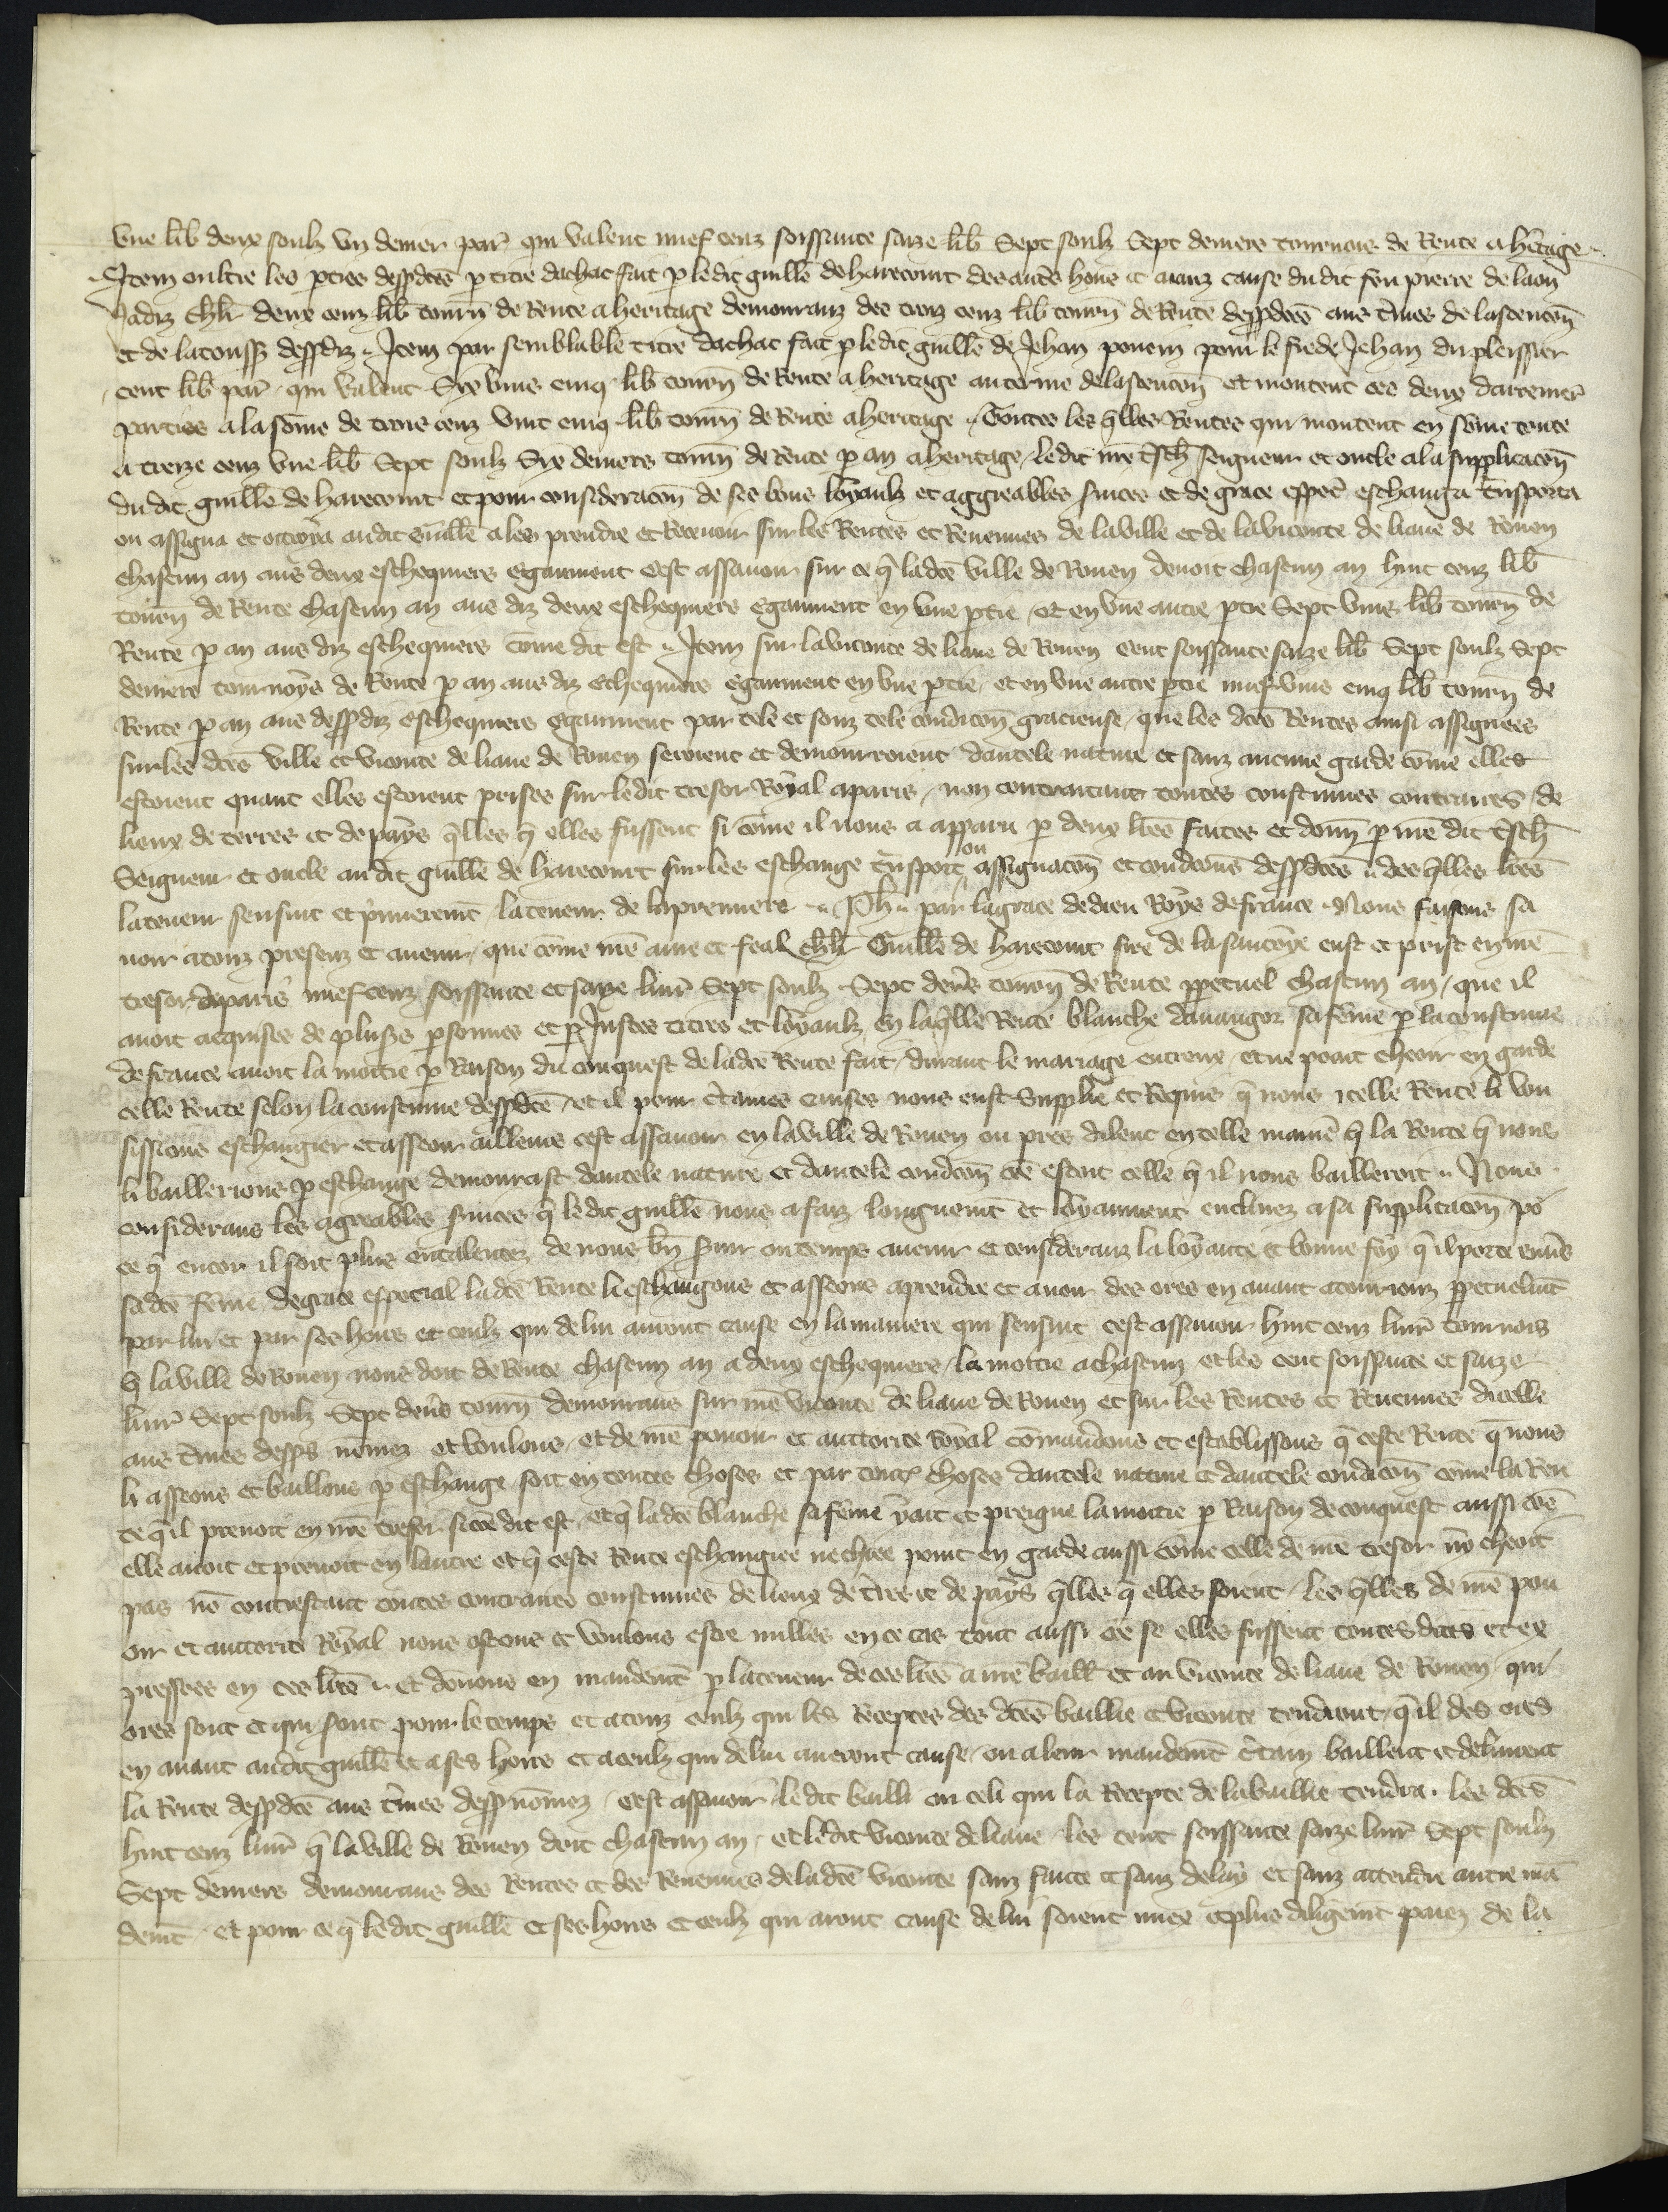 Vne lib deux soulz vn denier par qui valent nuef cenz soissante saize lib Sept soulz Sept deniers tournois de Rente a hitage
Item oultre les pties dessdces p titre dachat fait p ledit guille de harecourt des aues hoirs et aianz cause du dit feu pierre de laon
Jadiz chlr deux cenz lib tourn de Rente a heritage demouranz des trois cenz lib tourn de Rente dessdces aus tmes de lascencon
et de latoussz dessdiz Item par semblable titre dachat fait p ledit guille de Jehan pouein pour le fie de Jehan du pleissier
cent lib par qui valent Six vins cinq lib tourn de Rente a heritage au terme de lascencon et montent ces deux darrenier
parties a la some de trois cenz vint cinq lib tourn de Rente a heritage Toutes les qlles Rentes qui montent en some toute
a treize cenz vne lib Sept soulz Six deniers tourn de Rente p an a heritage ledit nre tsch seigneur et oncle a la supplicacon
du dit guille de harecourt et pour consideracon de ses bons loyaulz et aggreables suices et de grace especl eschanga tnsporta
ou assigna et ottroya audit Guille a les prendre et Recevoir sur les Rentes et Reuenues de la ville et de la viconte de liaue de Rouen
chascun an aus deux eschequiers egaument cest assauoir sur ce q ladce ville de Rouen deuoit chascun an huit cenz lib
tourn de Rente chascun an aus diz deux eschequiers egaument en vne ptie et en vne autre ptie Sept vins lib tourn de
Rente p an aus diz eschequiers come dit est Item sur la viconte de liaue de Rouen cent soissante saize lib Sept soulz Sept
deniers tournoys de Rente p an aus diz echequiers egaument en vne ptie et en vne autre ptie nuef vins cinq lib tourn de
Rente p an aus dessdiz eschequiers egaument par tele et souz tele condicon gracieuse que les dces Rentes ainsi assignees
sur les dces ville et viconte de liaue de Rouen seroient et demourroient dautele nature et sanz aucune garde come elles
estoient quant elles estoient prises sur ledit tresor Royal a paris non contraitant toutes coustumes contraires de
lieux de terres et de pays qlles q elles fussent si come il nous a apparu p deux lres faites et donn p nre dit tsch
Seigneur et oncle au dit guille de harecourt sur les eschange tnsport ou assignacon et condicons dessdces des qlles lres
la teneur sensuit et pmierement la teneur de la premiere Ph par la grace de dieu Roys de france Nous faisons sa
uoir a touz presenz et auenir que come nre ame et feal chlr Guille de harecourt sire de la saucoye eust et prist en nre
tresor a paris nuef cenz soissante et saize liur Sept soulz Sept dens tourn de Rente ppetuel chascun an que il
auoit acquises de plusrs psonnes et p Justes titres et loyaulz en laqlle Rente blanche dauaugor sa feme p la coustume
de france auoit la moitie p Raison du conquest de ladce Rente fait durant le mariage entreux et ne poait cheoir en garde
celle Rente selon la coustume dessdce et il pour ctaines causes nous eust Supplie et Requis q nous icelle Rente li vou
sissions eschangier et asseoir ailleurs cest assauoir en la ville de Rouen ou pres dilent en telle manie q la Rente q nous
li baillerions p eschange demourast dautele nature et dautele condicon coe estoit celle q il nous bailleroit Nous
considerans les agreables suices q ledit guille nous a faiz longuemt et loyaument enclinez a sa supplicacon po
ce q encor il soit plus entalentez de nous bn suir ou temps auenir et consideranz la loyaute et bonne foy q il porte enus
sadce feme de grace especial ladce Rente li eschangons et asseons a prendre et auoir des ores en auant a touriourz ppetuelmt
par lui et par ses hoirs et ceulz qui de lui auront cause en la maniere qui sensuit cest assauoir huit cenz liur tournois
q la ville de Rouen nous doit de Rente chascun an a deux eschequiers la moitie a chascun et les cent soissante et saize
liur Sept soulz Sept dens tourn demourans sur nre viconte de liaue de Rouen et sur les Rentes et Reuenues dicelle
aus tmes dessus nomez et voulons et de nre pouoir et auttorite Royal comandons et establissons q ceste Rente q nous
li asseons et baillons p eschange soit en toutes choses et par toutes choses dautele nature et dautele condicon come la Ren
te q il prenoit en nre tresor si coe dit est et q ladce blanche sa feme y ait et preigne la moitie p Raison de conquest aussi coe
elle auoit et prenoit en lautre et q ceste Rente eschangiee ne chiee point en garde aussi come celle de nre tresor no cheoit
pas no contrestant toutes contraires coustumes de lieux de tres et de pays qlles q elles soient les qlles de nre pou
oir et auttorite Royal nous ostons et voulons estre nulles en ce cas tout aussi coe se elles fussent toutes dces et ex
pressees en ces lres et donons en mandemt p la teneur de ces lres a nre baill et au viconte de liaue de Rouen qui
ores sont et qui sont pour le temps et a touz ceulz qui les Receptes des dces baillie et viconte tendront q il des ores
en auant audit guille et a ses hoirs et a ceulz qui de lui auront cause ou a leur mandemt ctain baillent et deliurent
la Rente dessdce aus tmes dessnomez cest assauoir ledit bailli ou celi qui la Recepte de la baillie tendra les dces
huit cenz liur q la ville de Rouen doit chascun an et ledit viconte de liaue les cent soissante saize liur Sept soulz
Sept deniers demourans des Rentes et des Reuenues de ladce viconte sanz faute et sanz delay et sanz attendre autre man
demt et pour ce q ledit guille et ses hoirs et ceulz qui aront cause de lui soient miex et plus diligemt paiez de la